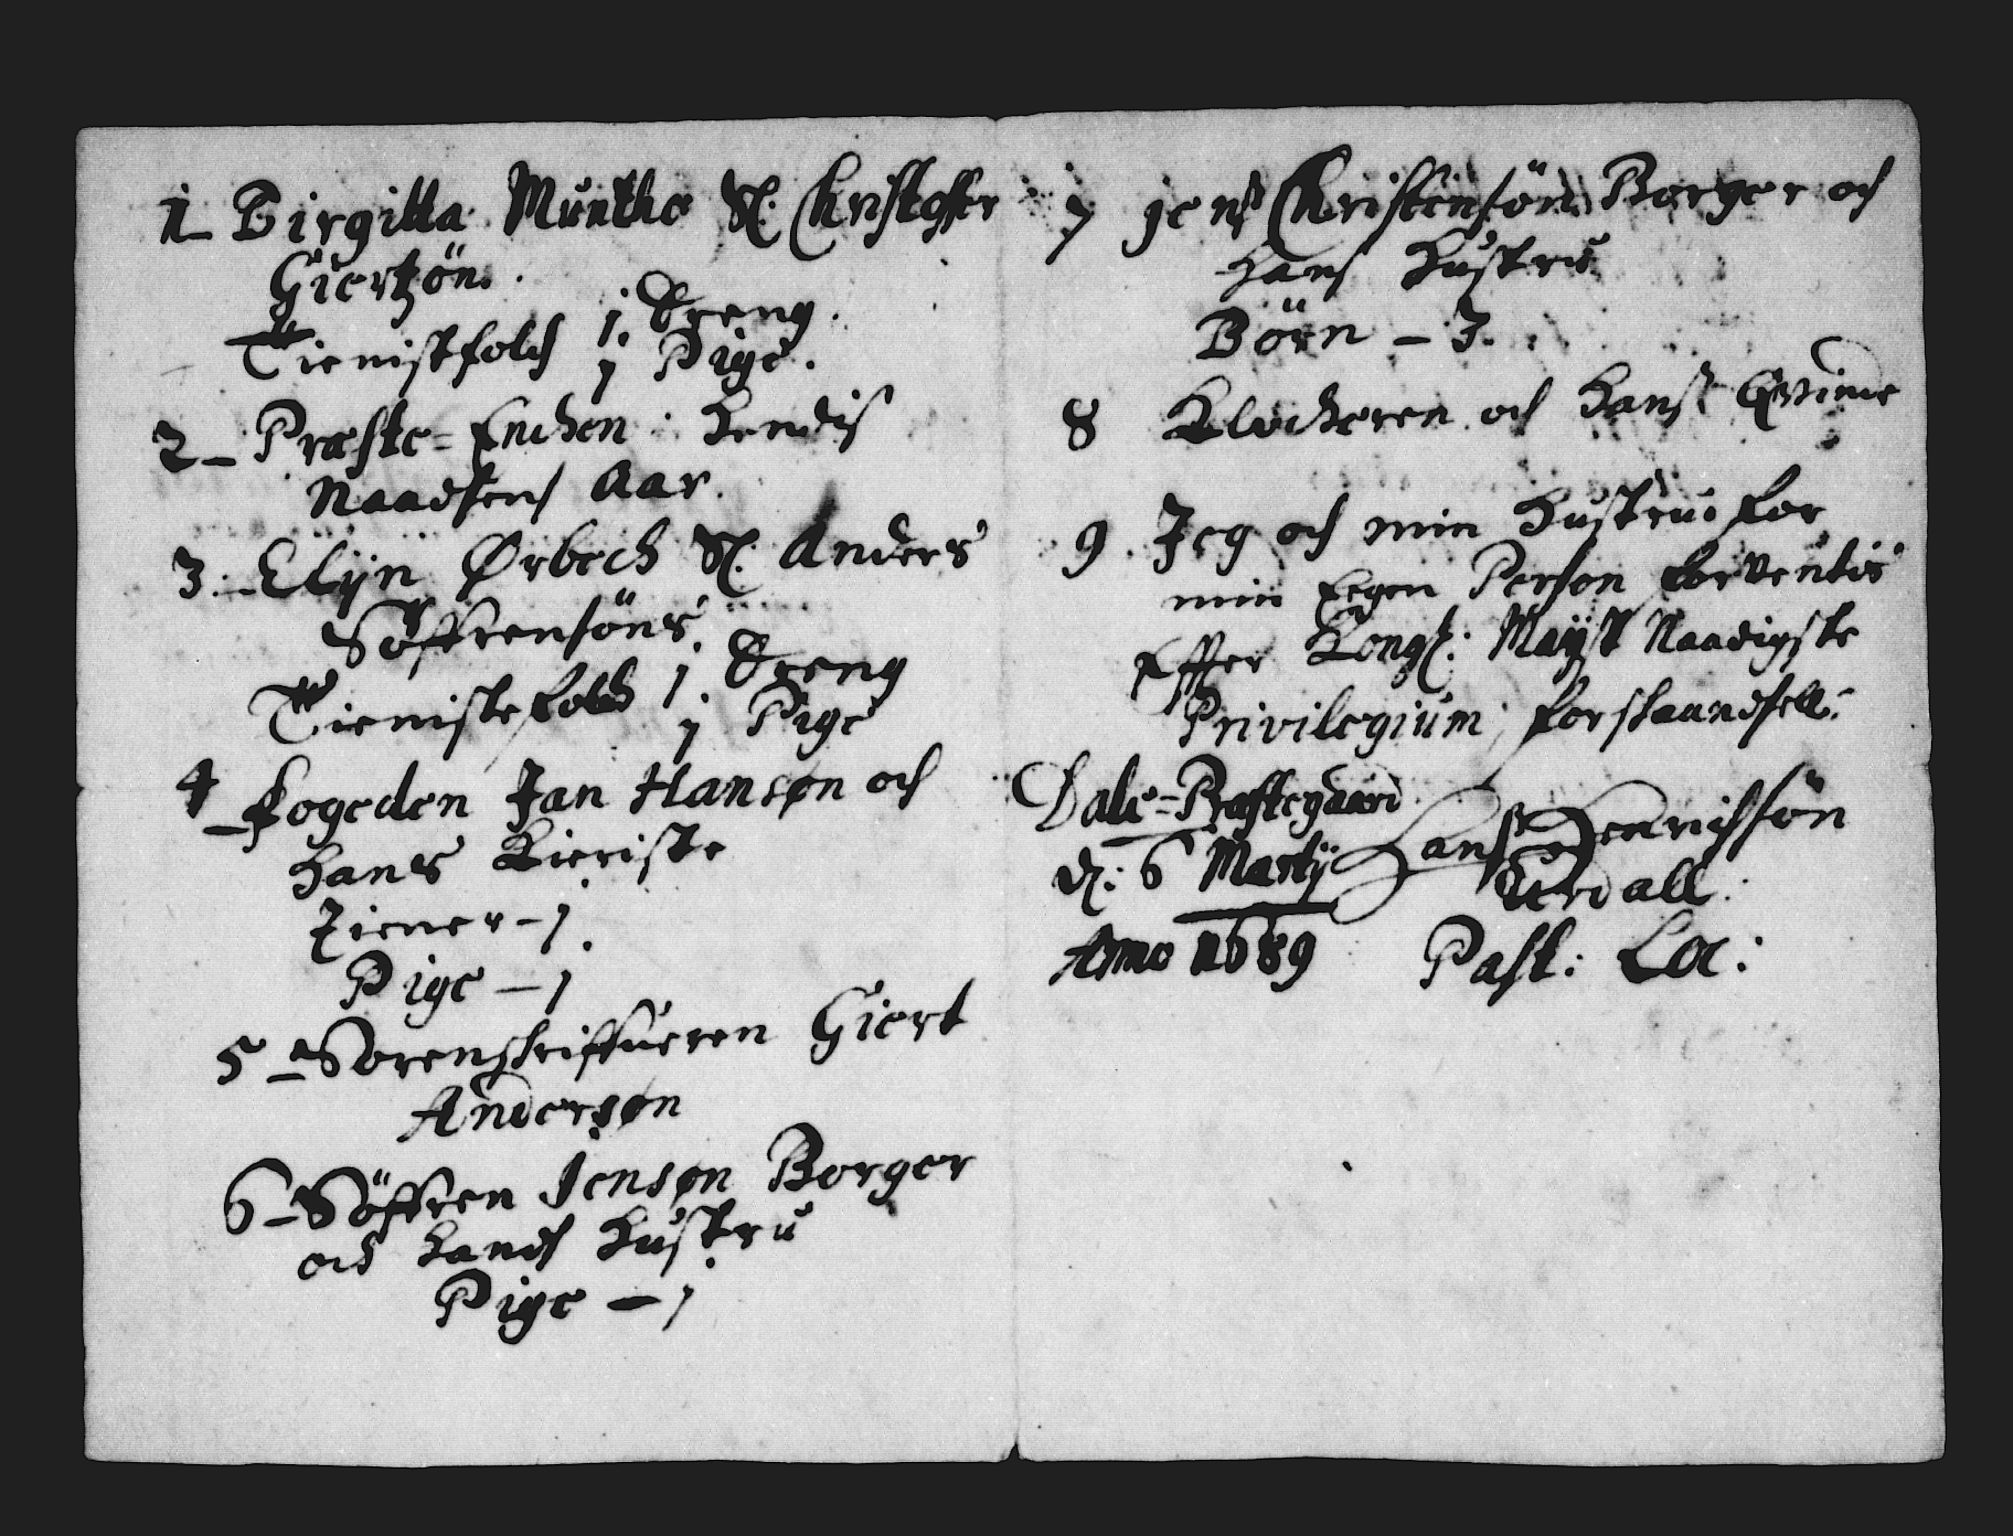 1_ Birgitta Munthe Sl. Christoffer
Giertzøn.
Tienistfolch 1. Dreng.
1 Pige.
2_ Præste=Enchen. Hendis
Naadsens Aar.
3._ Elÿn Ørbech Sl. Anders
Söffrensöns.
Tienistefolch 1. Dreng
1 Pige
4_ Fogeden Jan Hansøn och
Hans Kieriste
Tiener – 1.
Pige – 1
5_ Sorenskriffueren Giert
Andersøn
6_ Söffren Jensøn Borger
och Hands Hustru
Pige – 1
7 Jens Christensön Borger och
Hans Hustru
Börn – 3.
8 Klocheren och Hans Qvinde
9. Jeg och min Hustru for
min Eegen Person forventis
Effter Kongl: Maÿst Naadigste
Privilegium, forskaandsell:
Dale=Præstegaard
d: 6 Martÿ
Anno 1689
Hans Henrichsön
Lerdall.
Past: Loc: